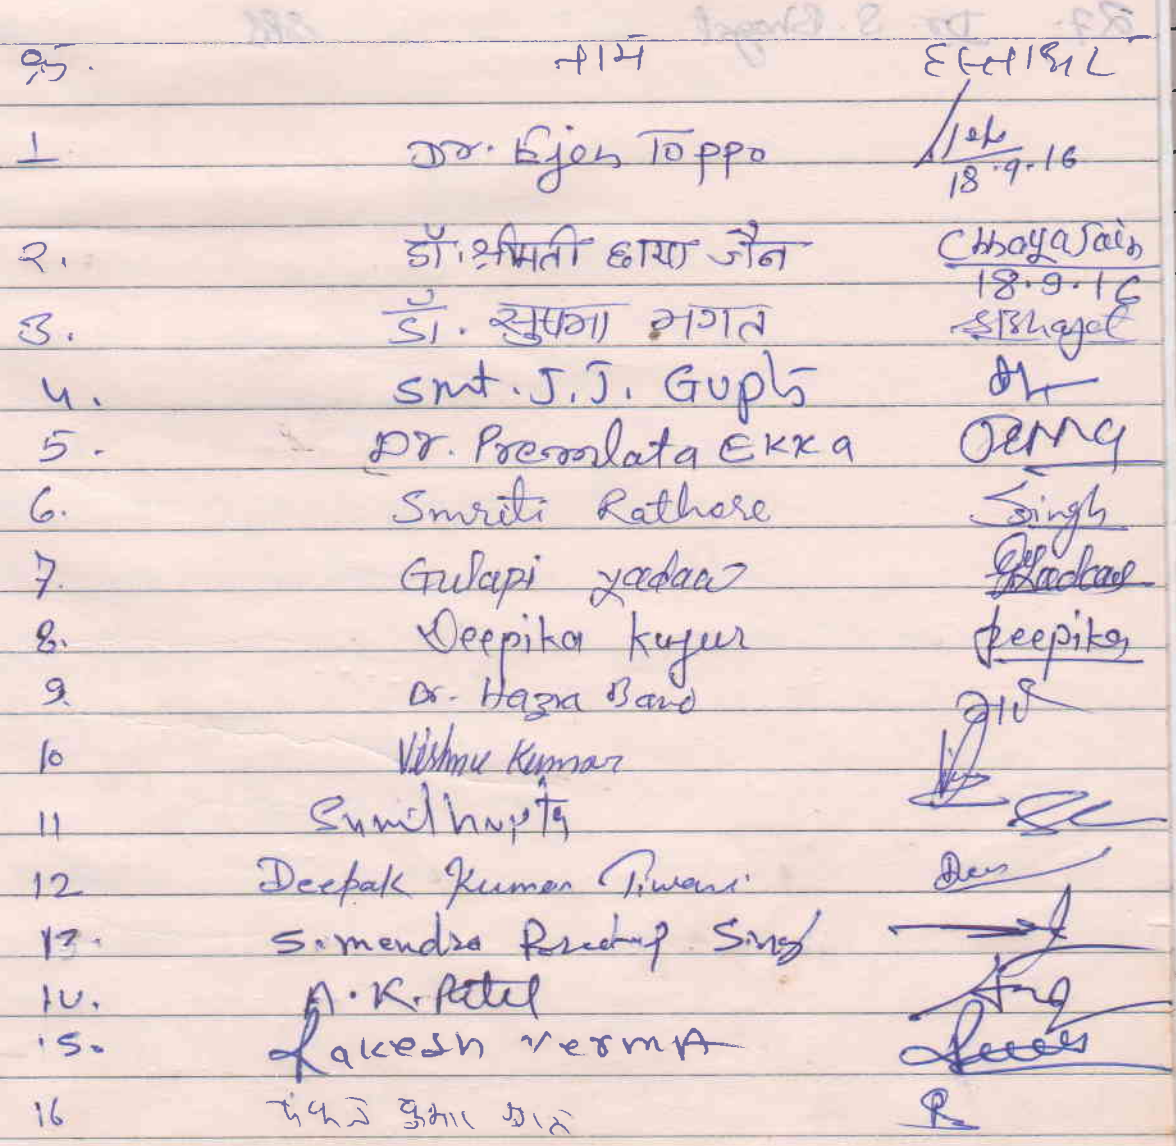 क्र. नाम हस्ताक्षर
1 Dr. Ejen Toppo
18.9.16
2. डॉ. श्रीमती छाया जैन Chhaya Jain
18.9.16
3. डॉ. सुषमा भगत SBhagat
4. Smt. J.J. Gupta
5. Dr. Premlata Ekka
6. Smriti Rathore Singh
7. Gulapi yadaav Yadav
8. Deepika Kujur Deepika
9. Dr. Hazra Bano
10 Vishnu Kumar
11 Sunil Gupta
12 Deepak Kumar Tiwari
13. Singh
14. A.K. Patel
15. Rakesh Verma
16 पंकज कुमार